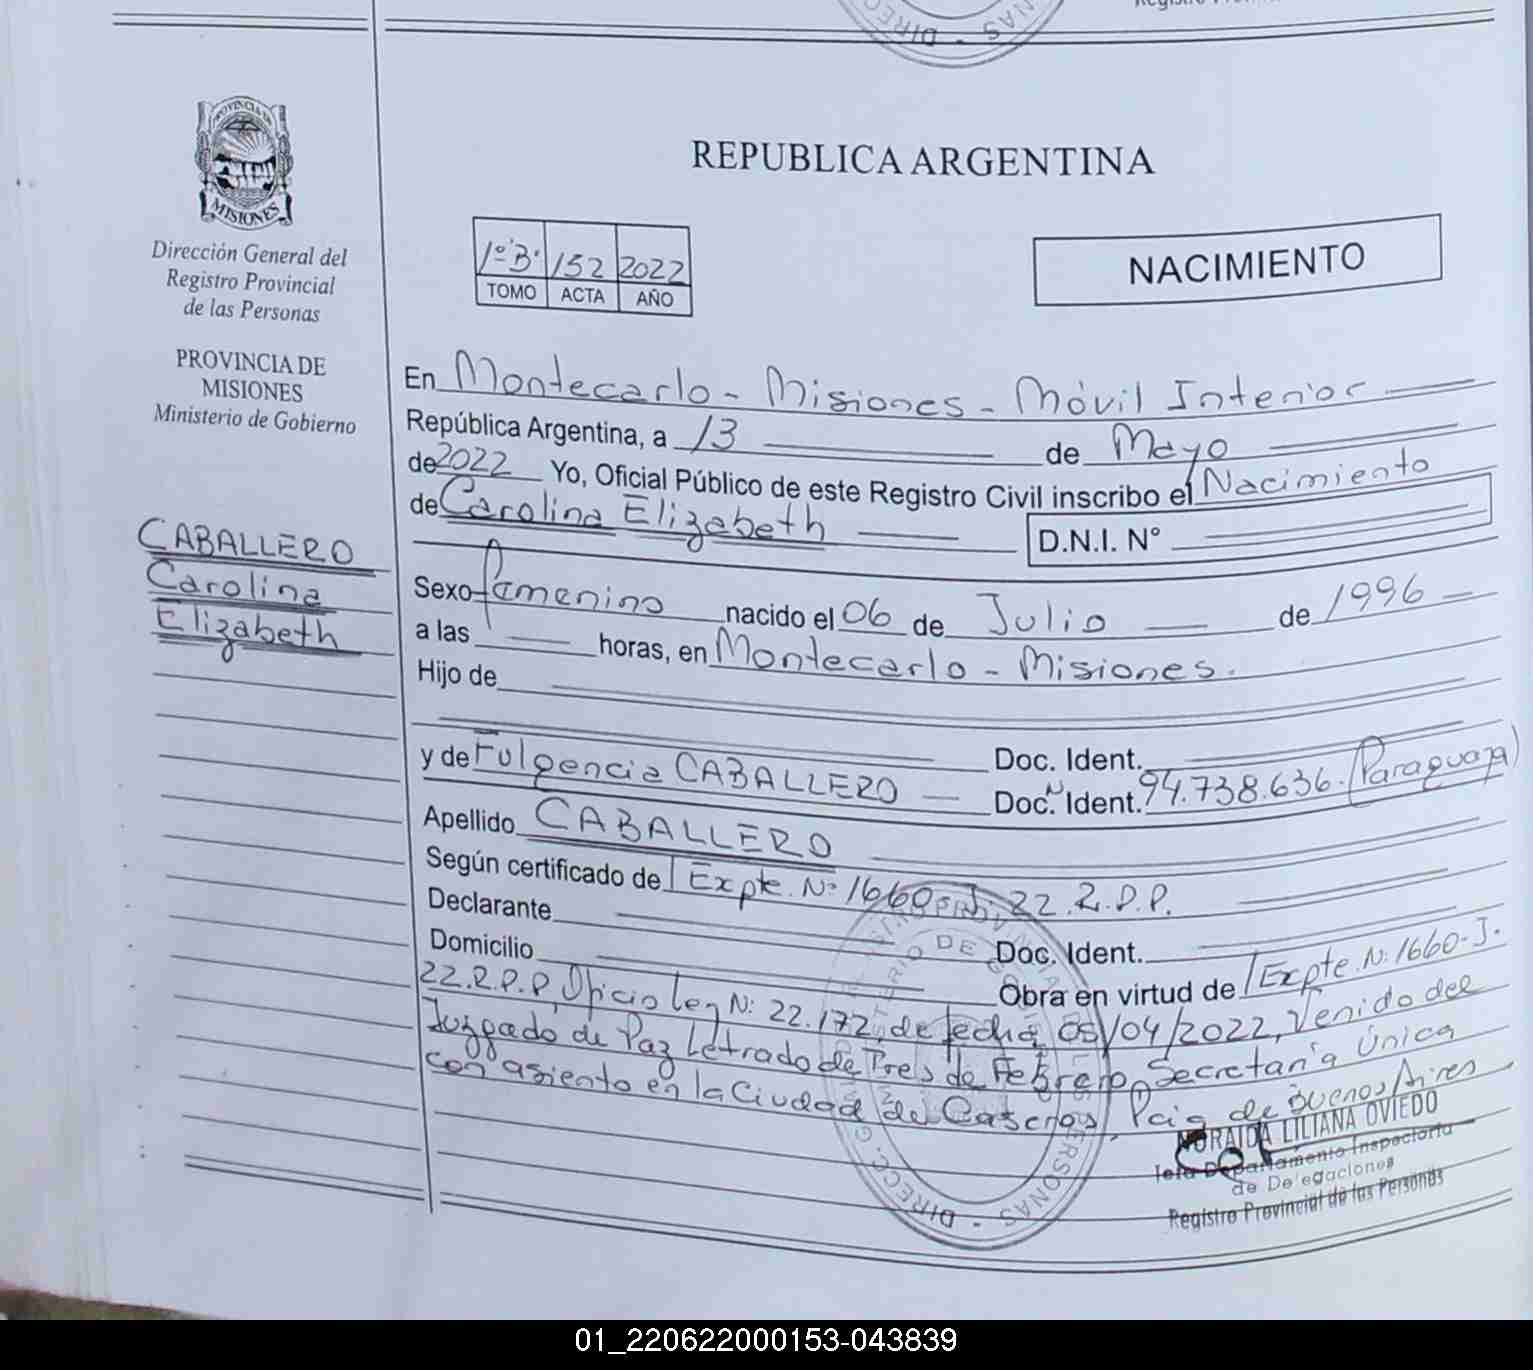 DIRE - NAS
PROVINCIA DE
MISIONES
Dirección General del
Registro Provincial
de las Personas
PROVINCIA DE
MISIONES
Ministerio de Gobierno
CABALLERO
Carolina
Elizabeth
REPUBLICA ARGENTINA
1º"B" 152 2022
TOMO ACTA AÑO
NACIMIENTO
En Montecarlo - Misiones - Móvil Interior
República Argentina, a 13 de Mayo
de 2022 Yo, Oficial Público de este Registro Civil inscribo el Nacimiento
de Carolina Elizabeth D.N.I. N°
Sexo femenino nacido el 06 de Julio de 1996
a las horas, en Montecarlo - Misiones.
Hijo de
Doc. Ident.
y de Fulgencia CABALLERO Doc. Ident. Nº 94.738.636. (Paraguaya)
Apellido CABALLERO
Según certificado de Expte. Nº 1660-J. 22.R.P.P.
Declarante Doc. Ident.
Domicilio Obra en virtud de Expte. Nº 1660-J.
22.R.P.P, Oficio Ley Nº 22.172, de fecha 05/04/2022, Venido del
Juzgado de Paz Letrado de Tres de Febrero, Secretaría Única
con asiento en la Ciudad de Caseros, Pcia de Buenos Aires
NORAIDA LILIANA OVIEDO
Jefa Departamento Inspectoria
de Delegaciones
Registro Provincial de las Personas
01_220622000153-043839